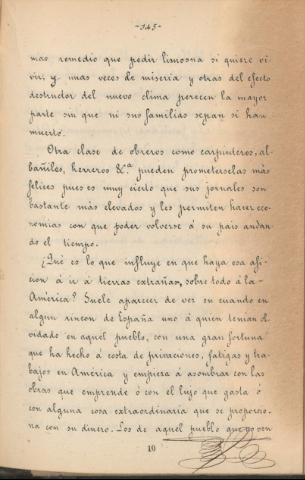 -145-
mas remedio que pedir limosna si quiere vi-
vir; y unas veces de miseria y otras del efecto
destructor del nuevo clima perecen la mayor
parte sin que ni sus familias sepan si han
muerto.
Otra clase de obreros como carpinteros, al-
bañiles, herreros &.ª pueden prometerselas más
felices pues es muy cierto que sus jornales son
bastante más elevados y les permiten hacer eco-
nomias con que poder volverse á su pais andan-
do el tiempo.
¿Qué es lo que influye en que haya esa afi-
cion á ir á tierras extrañas, sobre todo á la
América? Suele aparecer de vez en cuando en
algun rincon de España uno á quien tenian ol-
vidado en aquel pueblo, con una gran fortuna
que ha hecho á costa de privaciones, fatigas y tra-
bajos en América y empieza á asombrar con las
obras que emprende ó con el lujo que gasta ó
con alguna cosa extraordinaria que se proporcio-
na con su dinero. Los de aquel pueblo que no ven
10